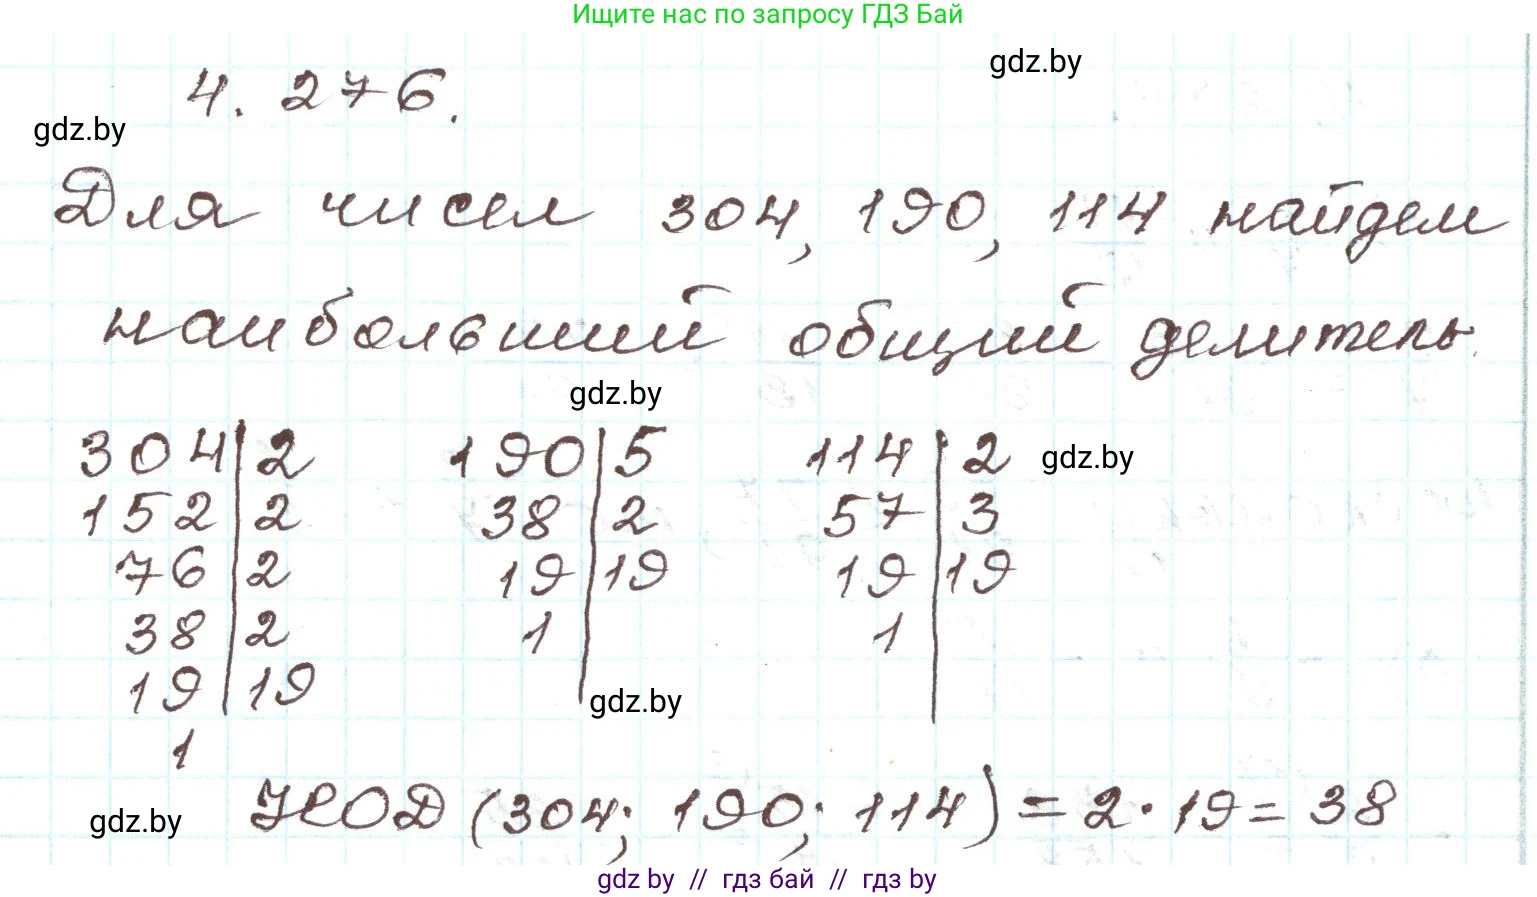 Ищите нас по запросу ГДЗ Бай
gdz.by
4. 276.
gdz.by
Для чисел 304, 190, 114 найдем
наибольший общий делитель.
gdz.by
304 | 2 190 | 5 114 | 2 gdz.by
152 | 2 38 | 2 57 | 3
76 | 2 19 | 19 19 | 19
38 | 2 1 1
19 | 19
gdz.by
1
НОД (304; 190; 114) = 2 · 19 = 38
gdz.by
gdz by // гдз бай // гдз by